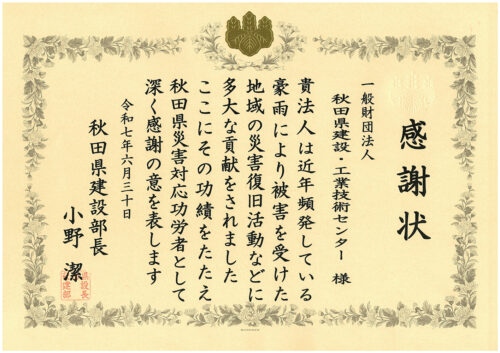 感謝状
一般財団法人
秋田県建設・工業技術センター 様
貴法人は近年頻発している
豪雨により被害を受けた
地域の災害復旧活動などに
多大な貢献をされました
ここにその功績をたたえ
秋田県災害対応功労者として
深く感謝の意を表します
令和七年六月三十日
秋田県建設部長
小野 潔